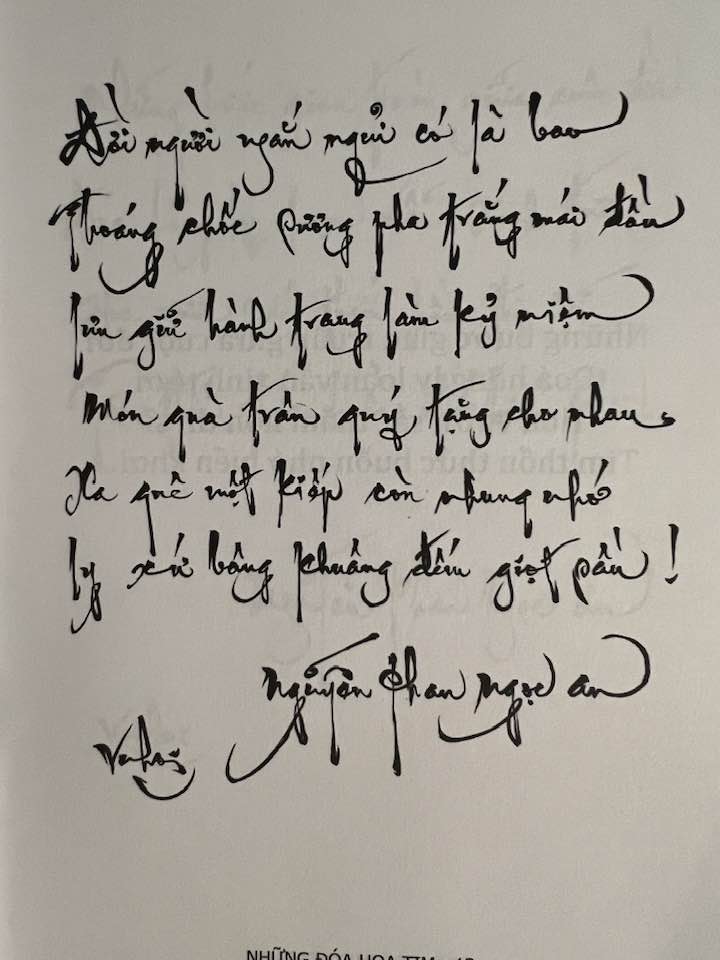 Đời người ngắn ngủi có là bao
Thoáng chốc sương pha trắng mái đầu
lưu giữ hành trang làm kỷ niệm
Món quà trân quý tặng cho nhau
Xa quê một kiếp còn nhung nhớ
ly xứ bâng khuâng đếm giọt sầu!
Nguyễn Phan Ngọc An
NHỮNG ĐÓA HOA